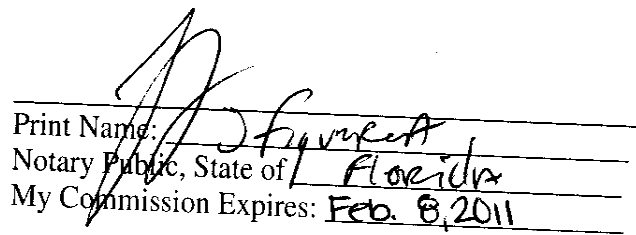 Print Name: J Figueroa
Notary Public, State of Florida
My Commission Expires: Feb. 8, 2011